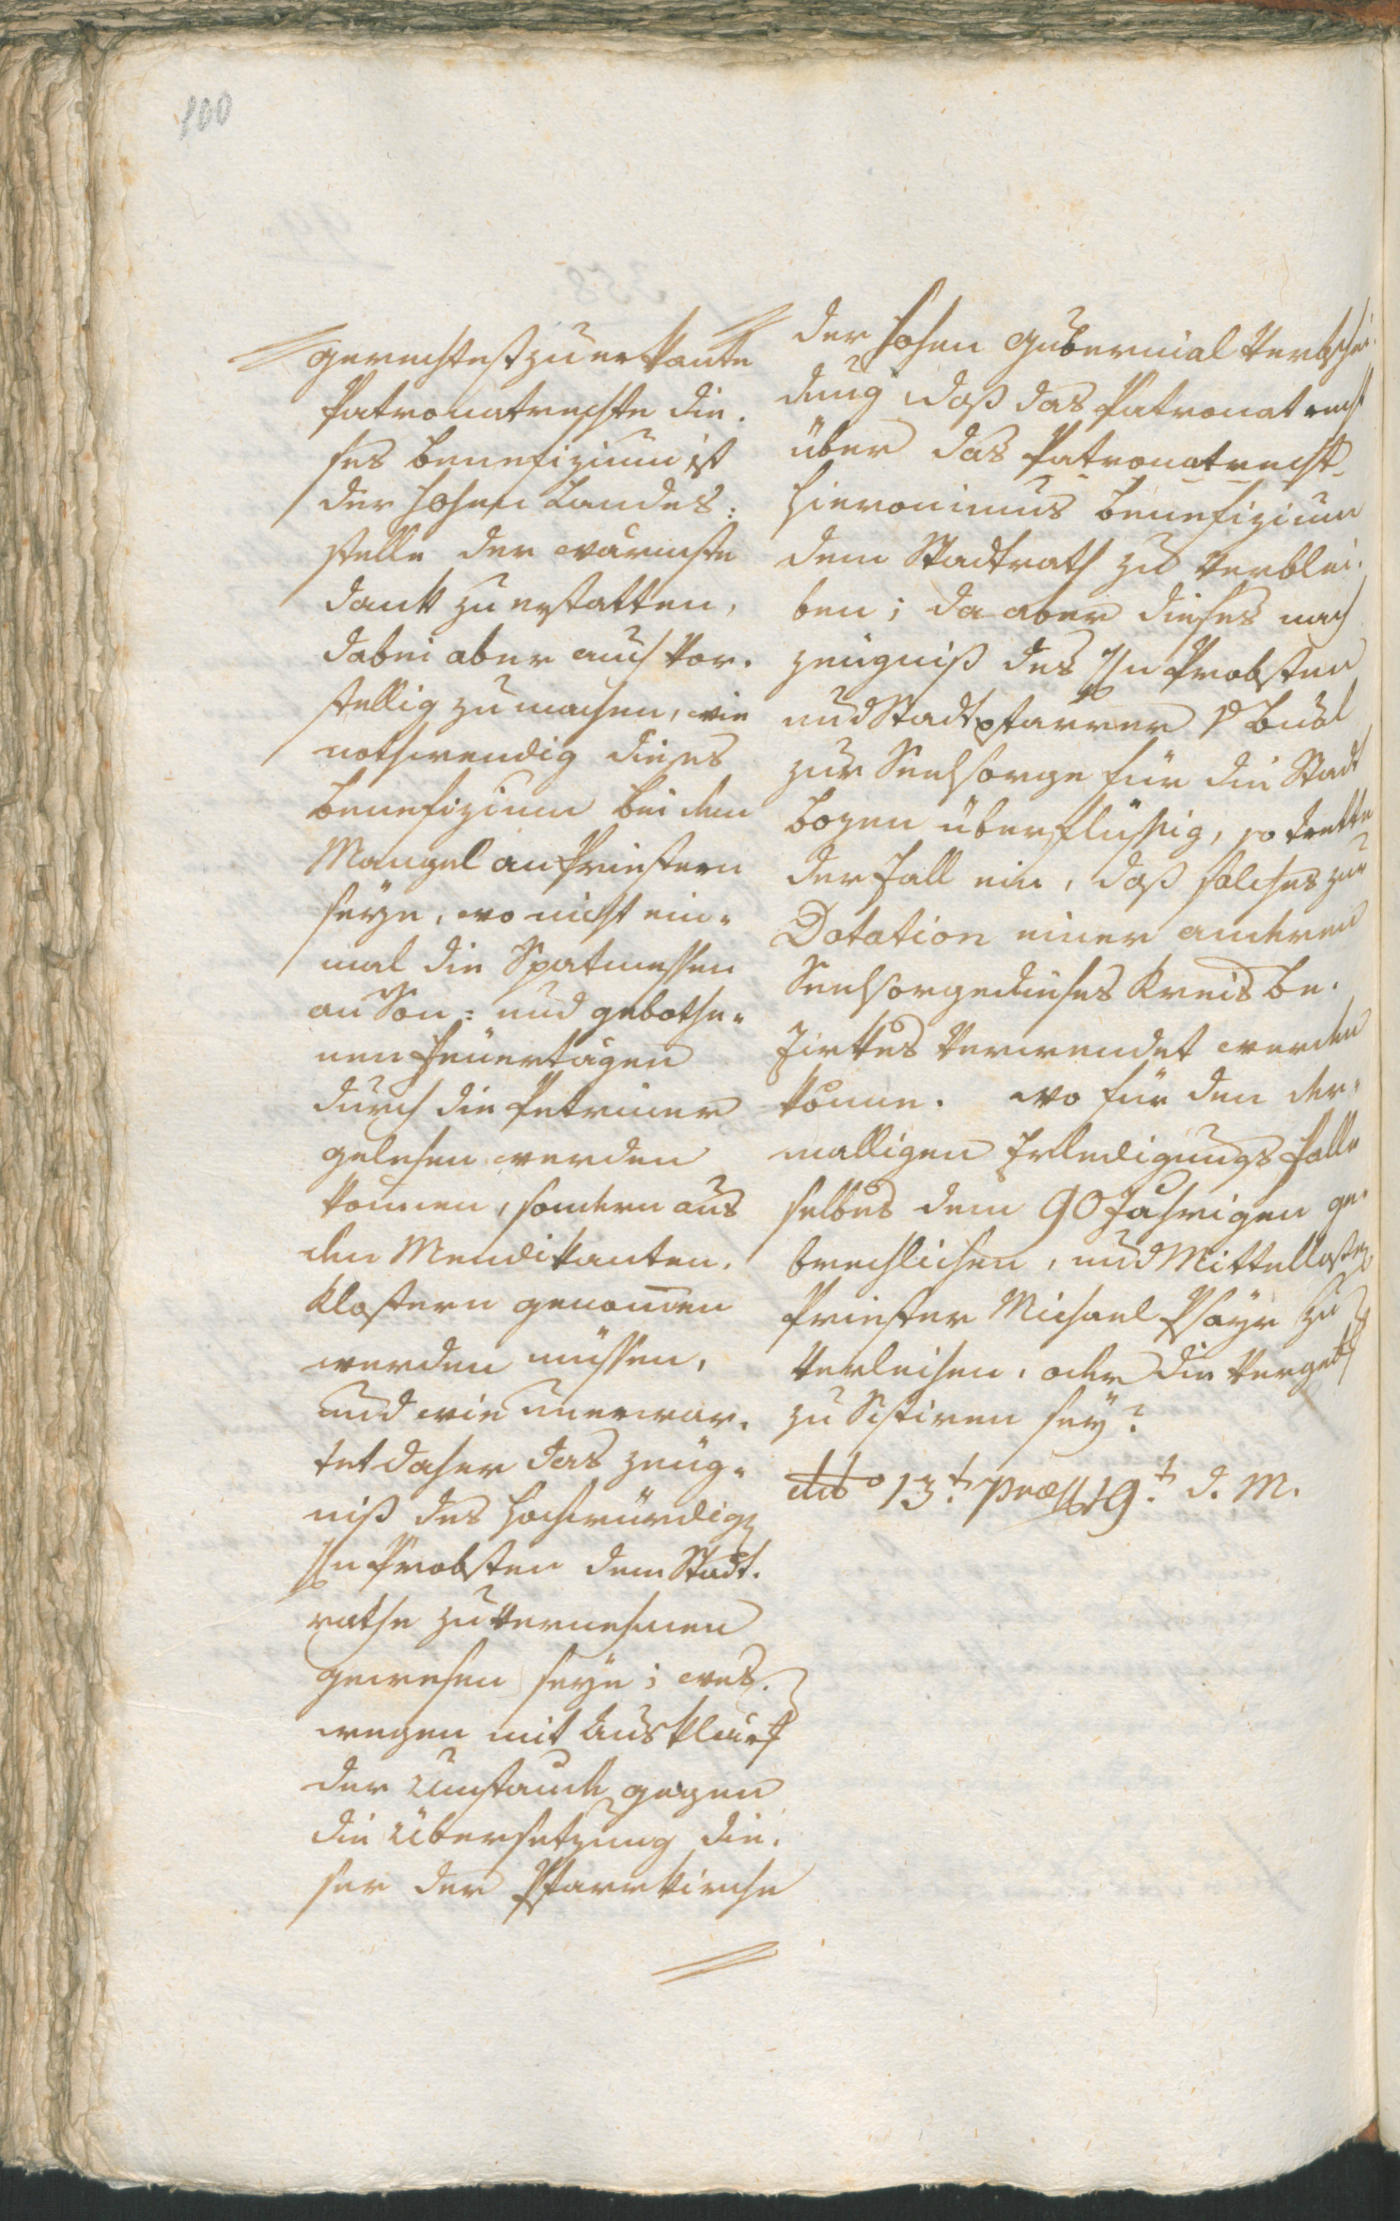 100
gerechtest zuerkante
Patronatrechte die-
ses Benefizium ist
der hohen Landes:
stelle der wärmste
Dank zu erstatten,
dabei aber auch vor-
stellig zu machen, wie
nothwendig dieses
Benefizium bei dem
Mangel an Priestern
seÿe, wo nicht ein-
mal die Spatmessen
an Son: und gebothe-
nen Feuertägen
durch die Petriner
gelesen werden
können, sondern aus
den Mendikanten-
klostern genomen
werden müssen,
und wie unerwar-
tet daher das Zeug-
niß des hochwürdig
Hn Probsten dem Stadt-
rathe zu vernehmen
gewesen seÿe; wes-
wegen mit Ausklärung
der Umstände gegen
die Übersetzung die-
ser der Pfarrkirche
der hohen Gubernial Verbschei-
dung daß das Patronat recht
über das Patronatrecht
Hieronimus Benefizium
dem Stadtrath zu verblei-
ben; da aber dieses nach
Zeugniß des Hn Probsten
und Stadtpfarrer v Büol
zur Seelsorge für die Stadt
Bozen überflüßig, so trette
der Fall ein, daß solches zur
Dotation einer anderen
Seelsorge dieses Kreis be-
zirkes verwendet werden
könne. wo für den der-
malligen Erledigungs falle
selbes dem 90 Jahrigen ge-
brechlichen, und Mittellosten
Priester Michael Psayr zu
verleihen, oder die Vergab
zu Sistiren seÿ?
ddto 13.t praes 19.t d. M.